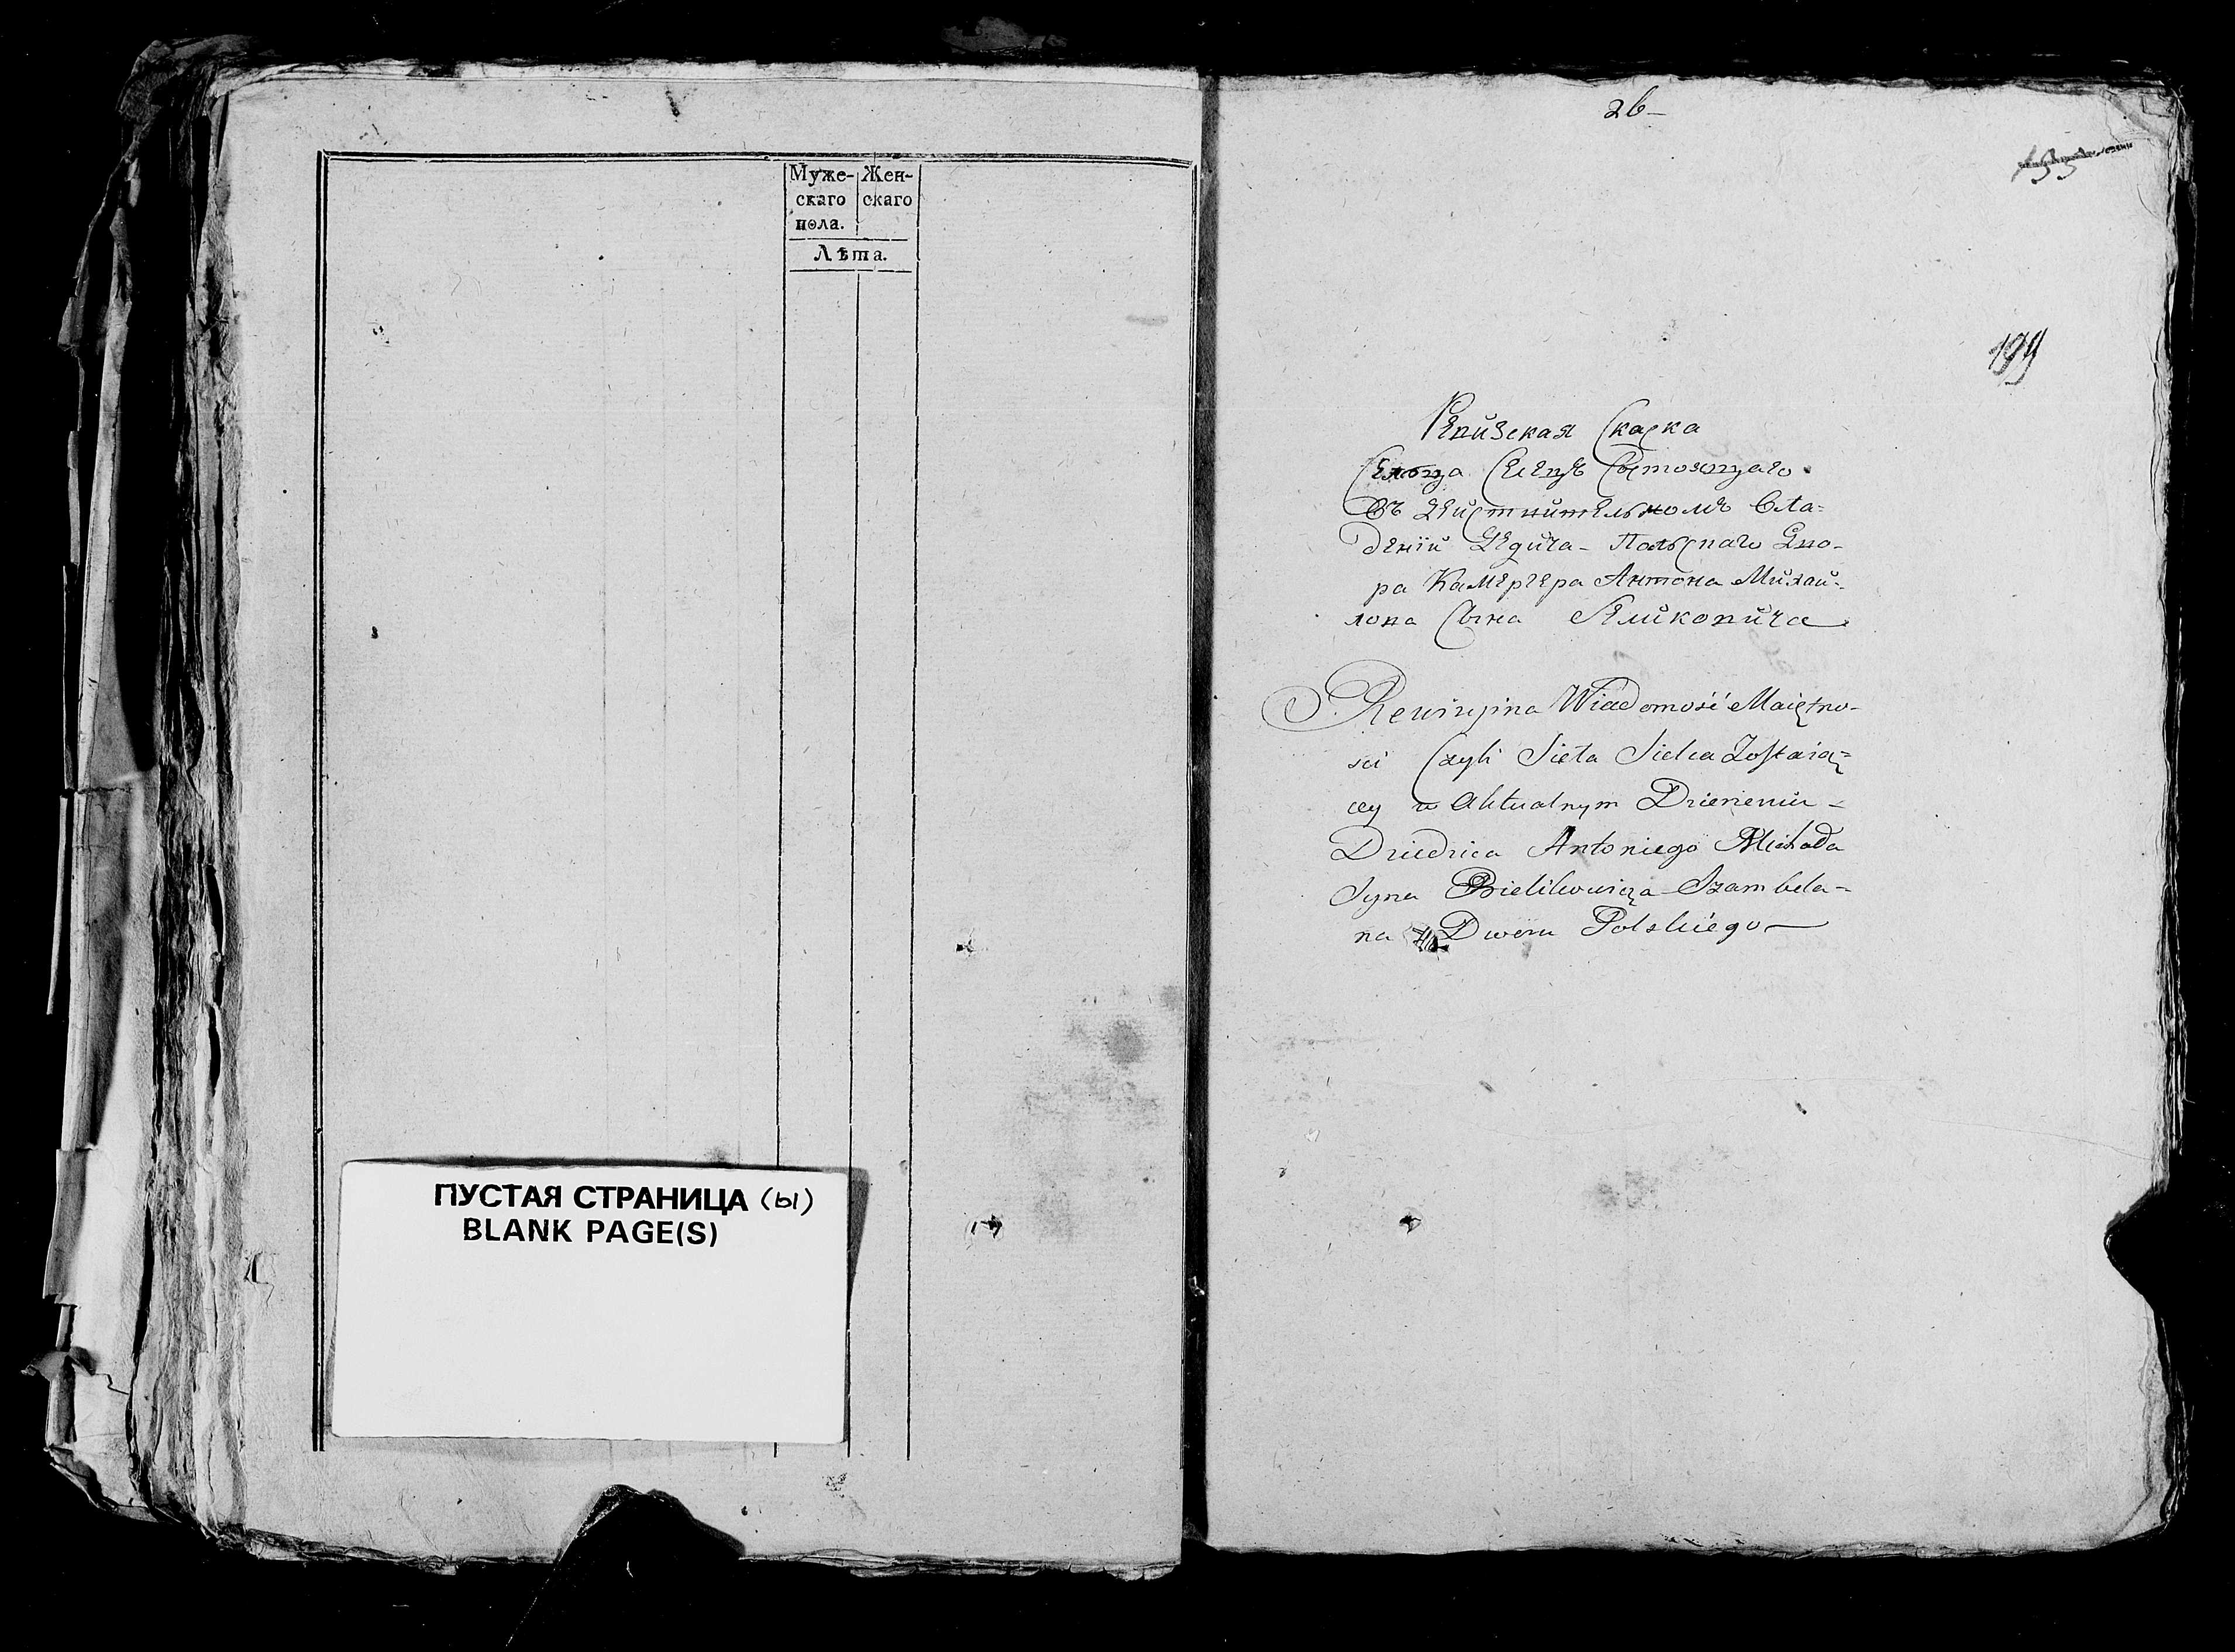 Муже- Жен-
скаго скаго
пола.
Лѣта.
ПУСТАЯ СТРАНИЦА (ы)
BLANK PAGE(S)
26
199
Ревизская Скаска
Сельца Селецъ Состоящаго
въ Действительномъ Вла=
деніи Дедича Польскаго Дво-
ра Камергера Антона Михай-
лова Сына
Rewizyina Wiadomość Maiętno-
ści Czyli Sioła Sielca Zostaią=
cey w Aktualnym Dzierżeniu
Dziedzica Antoniego Michała
Syna Bielikowicza Szambela-
na Dworu Polskiego